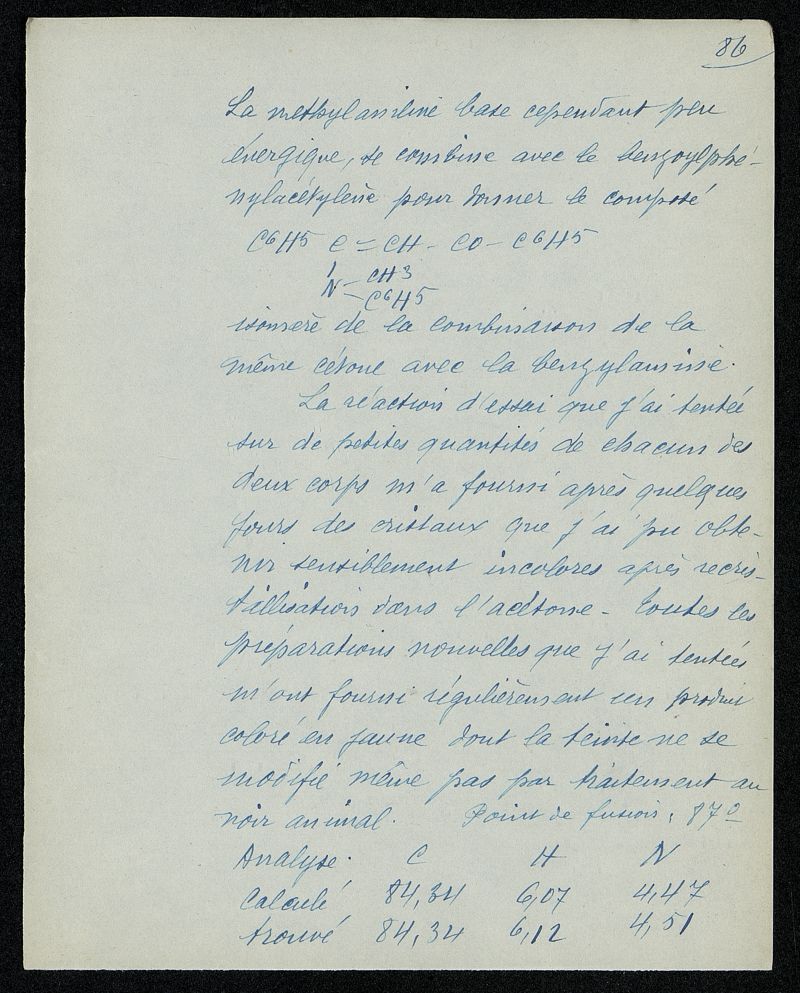 86
La méthylaniline base cependant peu
énergique, se combine avec le benzoylphé-
nylacétylène pour donner le composé
C6H5 C = CH - CO - C6H5
N - CH3
- C6H5
isomère de la combinaison de la
même cétone avec la benzylamine.
La réaction d'essai que j'ai tentée
sur de petites quantités de chacun des
deux corps m'a fourni après quelques
jours des cristaux que j'ai pu obte-
nir sensiblement incolores après recris-
tallisation dans l'acétone - Toutes les
préparations nouvelles que j'ai tentées
m'ont fourni régulièrement un produit
coloré en jaune dont la teinte ne se
modifie même pas par traitement au
noir animal. Point de fusion : 87°
Analyse. C H N
Calculé 84,34 6,07 4,47
trouvé 84,34 6,12 4,51